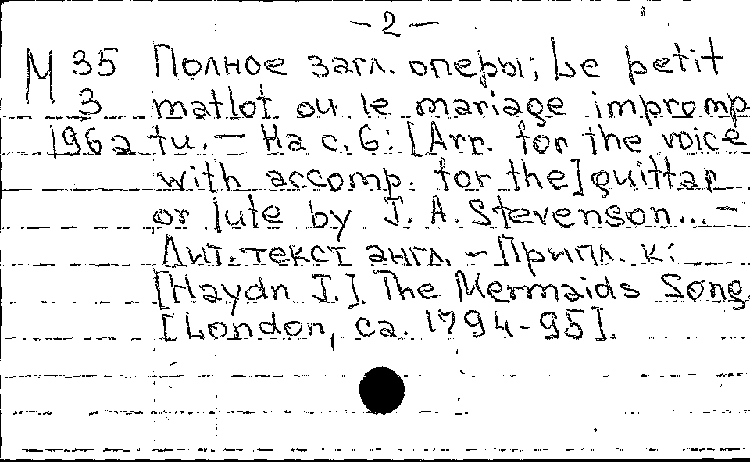 - 2 -
М 35 Полное загл. оперы: Le petit
3 matlot ou le mariage impromp
1962 tu. - На с. 6: [Arr. for the voice
with accomp. for the] guittar
or lute by J. A. Stevenson... -
Лит. текст англ. - Припл. к:
[Haydn J.]. The Mermaids Song
[London, ca. 1794-95].